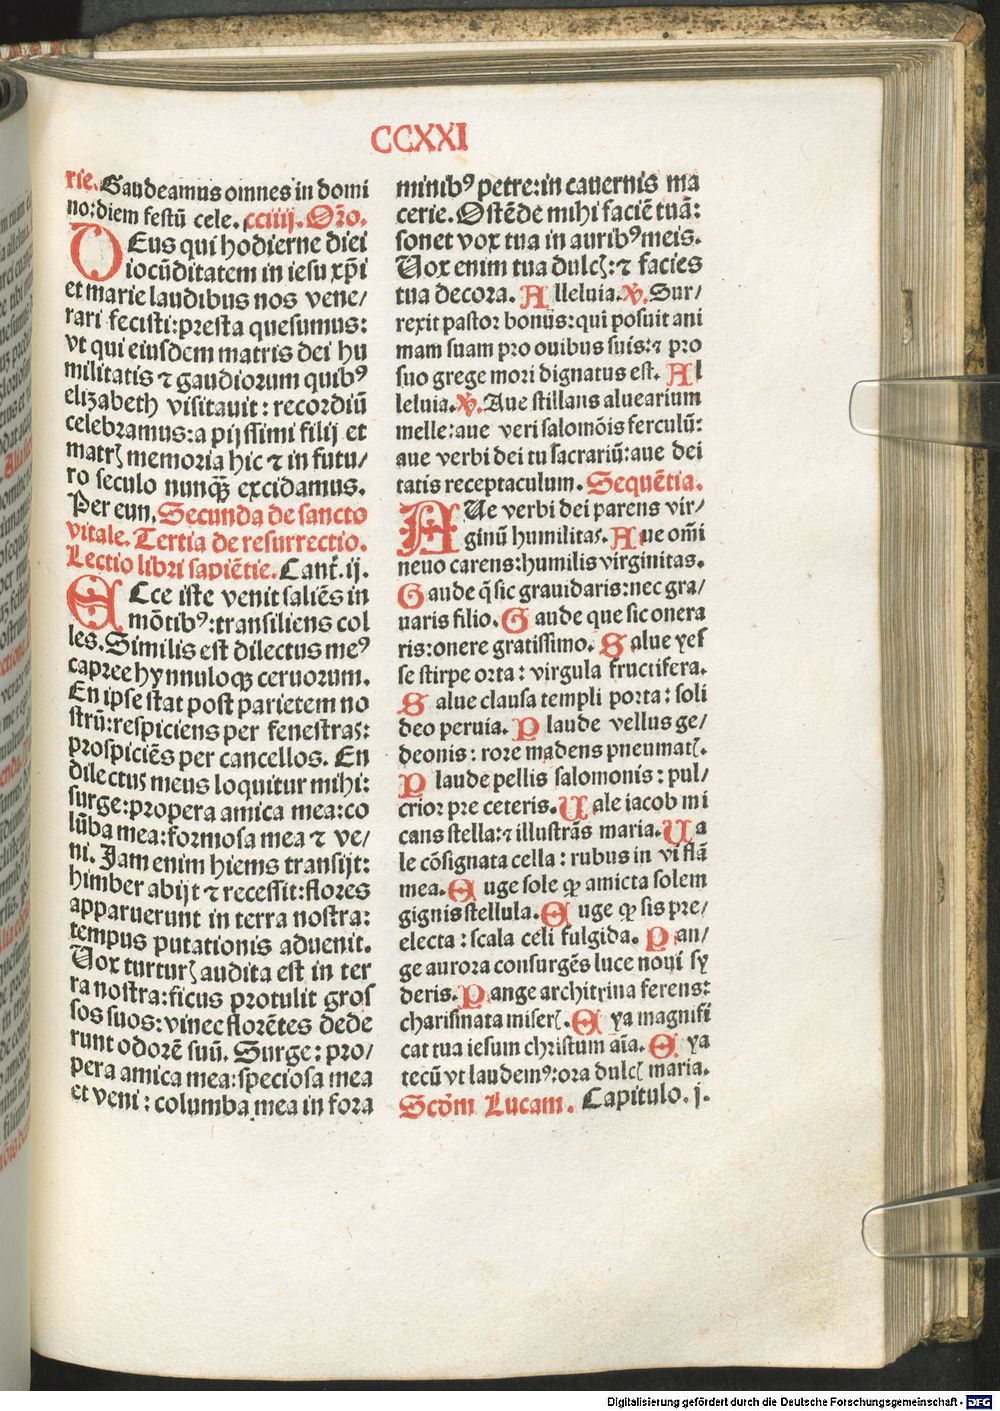 CCXXI
rie. Gaudeamus omnes in domi
no: diem festū cele. cciiij. Oro.
DEus qui hodierne diei
iocūditatem in iesu xp̄i
et marie laudibus nos vene/
rari fecisti: presta quesumus:
vt qui eiusdem matris dei hu
militatis ⁊ gaudiorum quibꝰ
elizabeth visitauit: recordiū
celebramus: a pijssimi filij et
matrꝭ memoria hic ⁊ in futu/
ro seculo nunqꝫ excidamus.
Per eun. Secunda de sancto
vitale. Tertia de resurrectio.
Lectio libri sapiētie. Cant. ij.
ECce iste venit saliēs in
mōtibꝰ: transiliens col
les. Similis est dilectus meꝰ
capree hynnuloqꝫ ceruorum.
En ipse stat post parietem no
strū: respiciens per fenestras:
prospiciēs per cancellos. En
dilectus meus loquitur mihi:
surge: propera amica mea: co
lūba mea: formosa mea ⁊ ve/
ni. Jam enim hiems transijt:
himber abijt ⁊ recessit: flores
apparuerunt in terra nostra:
tempus putationis aduenit.
Vox turturꝭ audita est in ter
ra nostra: ficus protulit gros
sos suos: vinee florētes dede
runt odorē suū. Surge: pro/
pera amica mea: speciosa mea
et veni: columba mea in fora
minibꝰ petre: in cauernis ma
cerie. Ostēde mihi faciē tuā:
sonet vox tua in auribꝰ meis.
Vox enim tua dulcꝭ: ⁊ facies
tua decora. Alleluia. ℣. Sur/
rexit pastor bonus: qui posuit ani
mam suam pro ouibus suis: ⁊ pro
suo grege mori dignatus est. Al
leluia. ℣. Aue stillans aluearium
melle: aue veri salomōis ferculū:
aue verbi dei tu sacrariū: aue dei
tatis receptaculum. Sequētia.
AUe verbi dei parens vir/
ginū humilitas. Aue om̄i
neuo carens: humilis virginitas.
Gaude q̄ sic grauidaris: nec gra/
uaris filio. Gaude que sic onera
ris: onere gratissimo. Salue yes
se stirpe orta: virgula fructifera.
Salue clausa templi porta: soli
deo peruia. Plaude vellus ge/
deonis: rore madens pneumatꝭ.
Plaude pellis salomonis: pul/
crior pre ceteris. Uale iacob mi
cans stella: ⁊ illustrās maria. Ua
le cōsignata cella: rubus in vi flā
mea. Euge sole ꝙ amicta solem
gignis stellula. Euge ꝙ sis pre/
electa: scala celi fulgida. Pan/
ge aurora consurgēs luce noui sy
deris. Pange architrina ferens:
charismata miserꝭ. Eya magnifi
cat tua iesum christum aīa. Eya
tecū vt laudemꝰ: ora dulcꝭ maria.
Scd̄m Lucam. Capitulo. j.
Digitalisierung gefördert durch die Deutsche Forschungsgemeinschaft - DFG